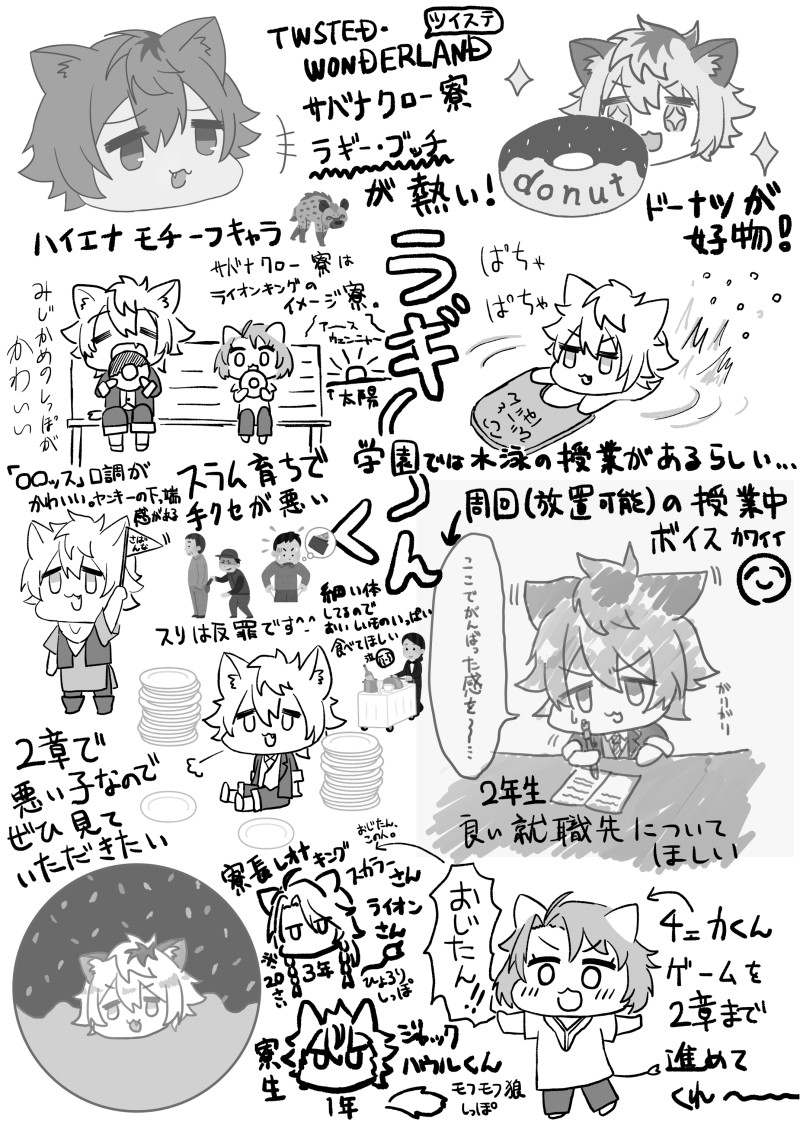 TWSTED-
WONDERLAND
ツイステ
サバナクロー寮
ラギー・ブッチ
が熱い!
ハイエナモチーフキャラ
donut
ドーナツが
好物!
サバナクロー寮は
ライオンキングの
イメージ寮。
みじかめのしっぽが
かわいい
アーース
ウェンニャー
↑太陽
ラギーくん
ばちゃ
ばちゃ
学園では水泳の授業があるらしい…
「〇〇ッス」口調が
かわいい。ヤンキーの下っ端
感がある
さばんな
スラム育ちで
手クセが悪い
スリは犯罪です^^
周回(放置可能)の授業中
ボイスカワイイ
細い体
してるので
おいしいものいっぱい
食べてほしい
ここでがんばった感を〜…
がりがり
2年生
良い就職先について
ほしい
2章で
悪い子なので
ぜひ見て
いただきたい
寮長レオナ
キング
スカラーさん
ライオン
さん
※20さい
3年
ひょろり。
しっぽ
おじたん、
このん。
おじたん!!
チェカくん
ゲームを
2章まで
進めて
くれ〜
寮生
ジャック
ハウルくん
1年
モフモフ狼
しっぽ